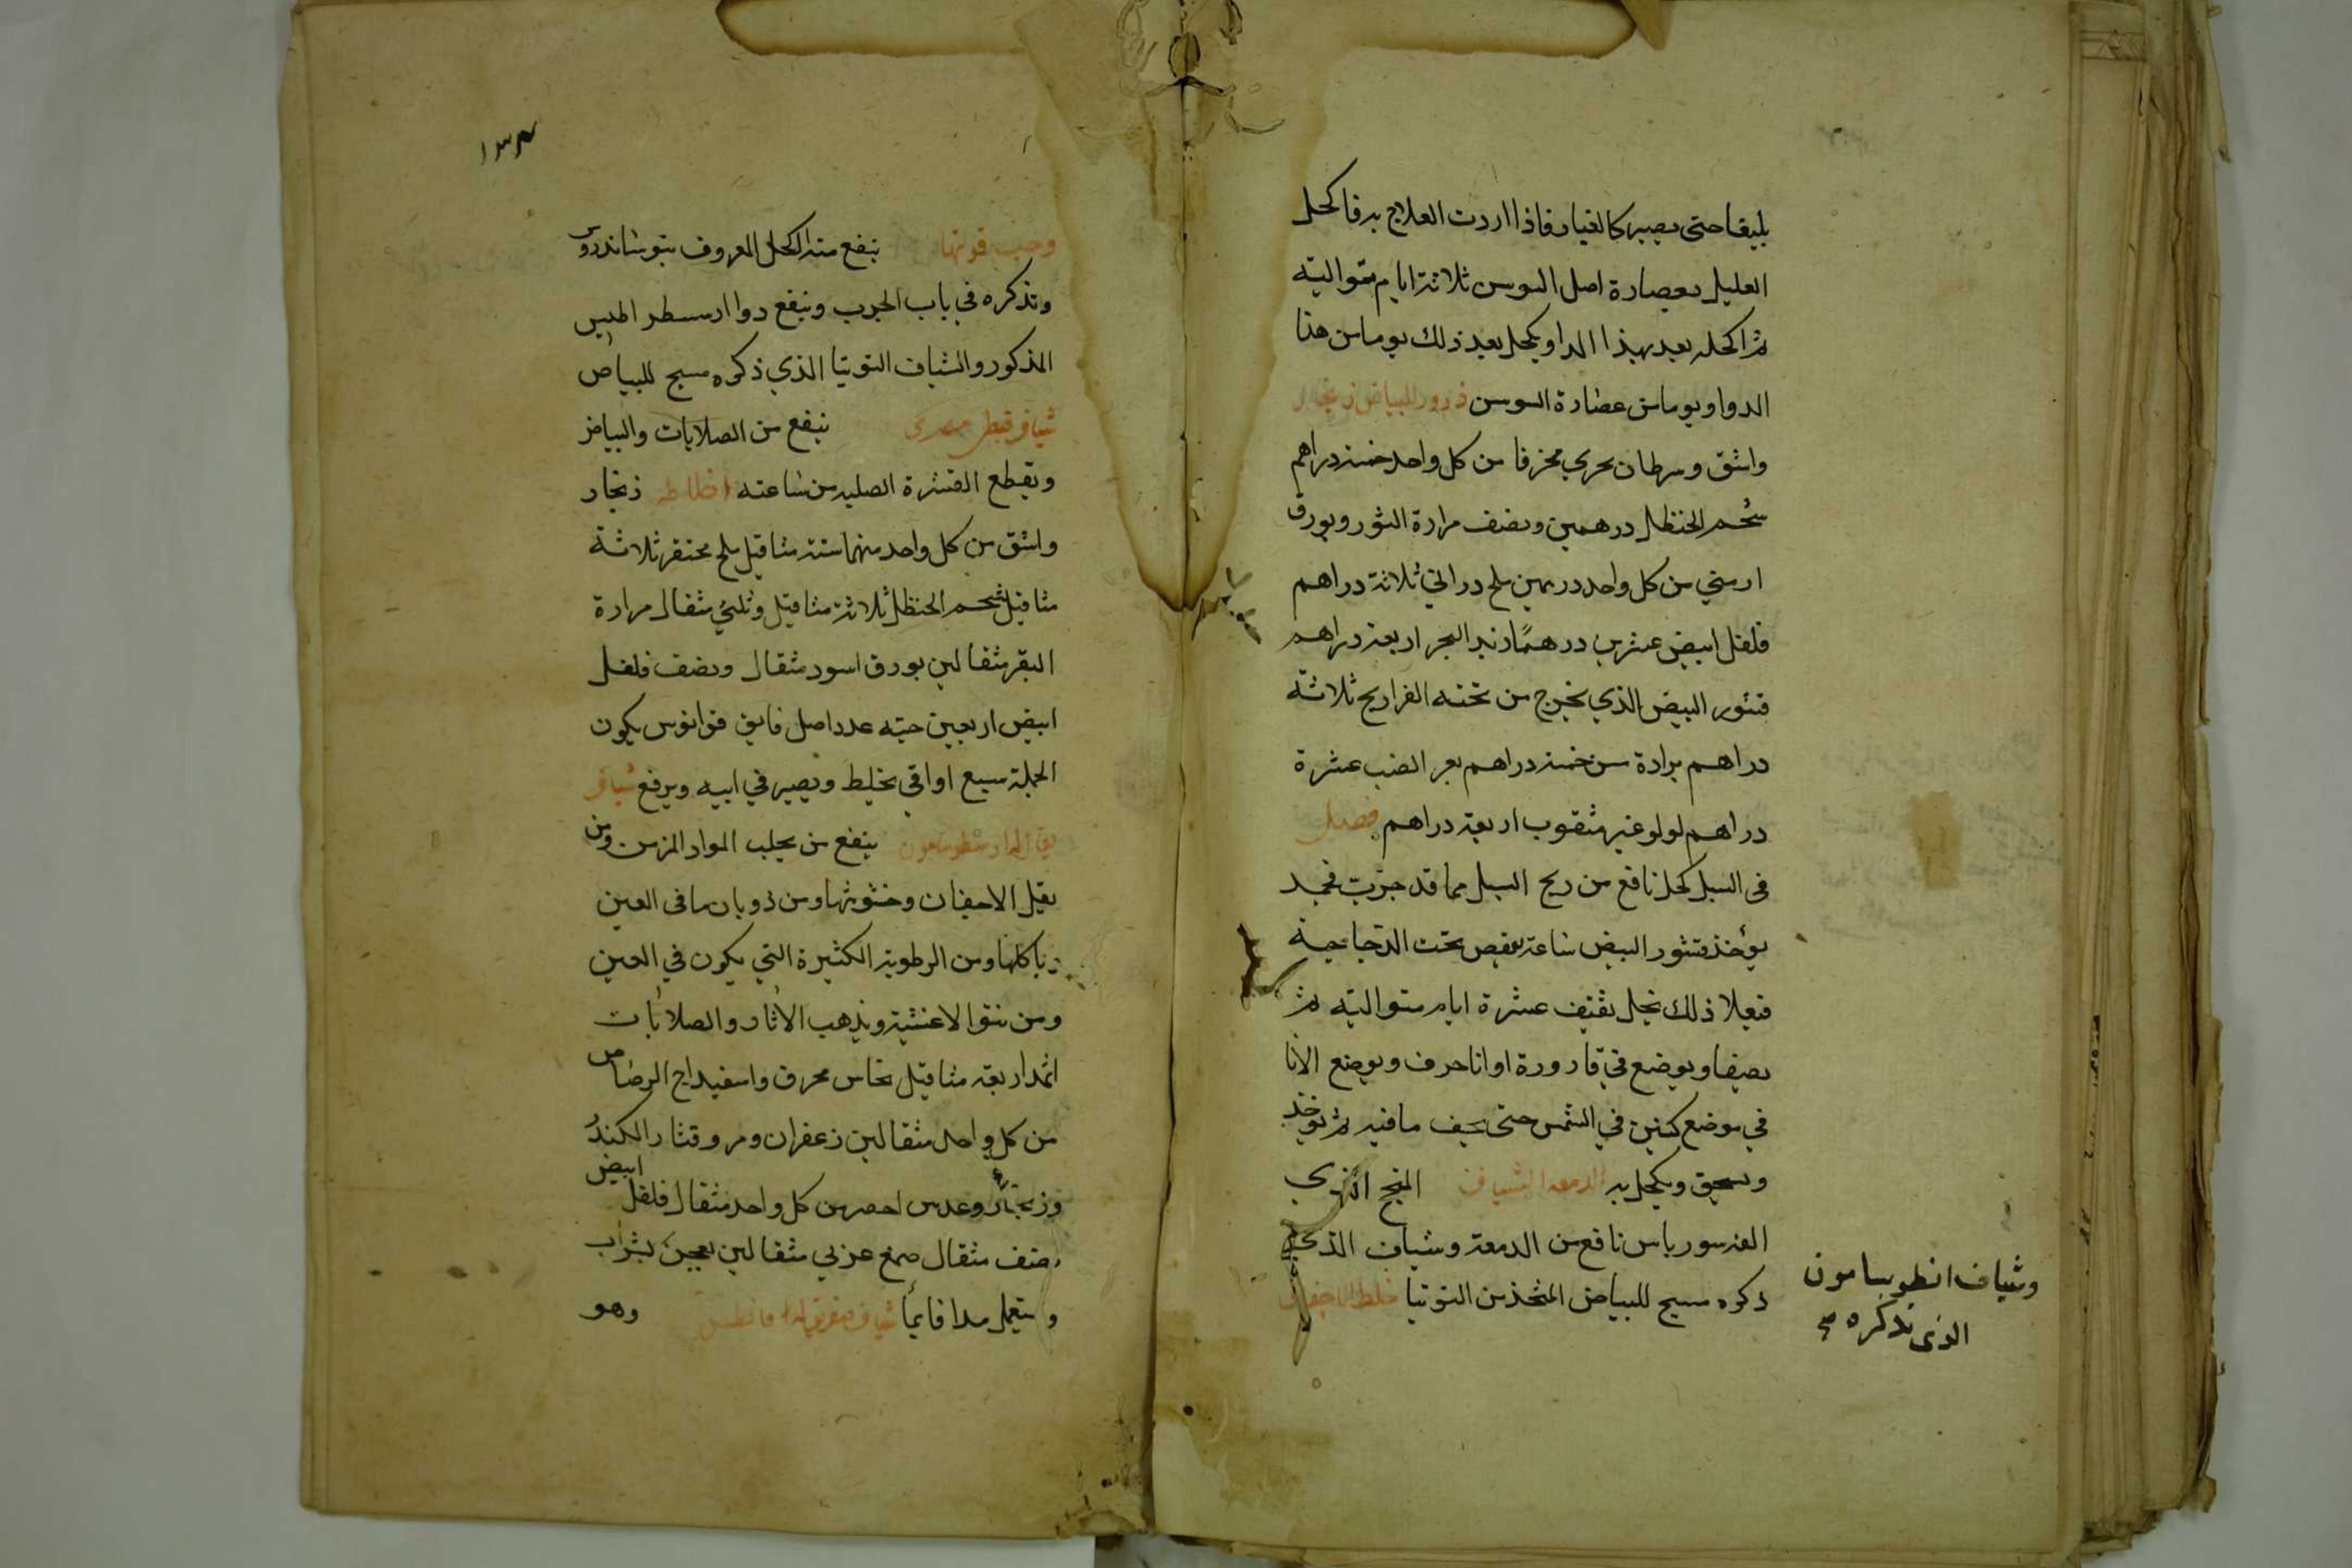 بليغا حتى يصير كالغبار فاذا اردت العلاج به فاكحل
العليل بعصارة اصل السوسن ثلاثة ايام متوالية
ثم اكحله بعد بهذا الدوا ويكحل بعد ذلك يوما من هذا
الدوا ويوما من عصارة السوسن ذرور للبياض زنجار
واشق وسرطان بحري محرقا من كل واحد خمسة دراهم
شحم الحنظل درهمين ونصف مرارة الثور وبورق
ارمني من كل واحد درهمين ملح دراني ثلاثة دراهم
فلفل ابيض عشرين درهمًا زبد البحر اربعة دراهم
قشور البيض الذي يخرج من تحته الفراريج ثلاثة
دراهم برادة مسن خمسة دراهم بعر الضب عشرة
دراهم لولو غير مثقوب اربعة دراهم فصل
فى السبل كحل نافع من ريح السبل مما قد جرّبت فحمد
يؤخذ قشور البيض ساعة تفقص تحت الدجاجة
فعلا ذلك بخل ثقيف عشرة ايام متوالية ثم
يصفا ويوضع في قارورة او انا خزف ويوضع الانا
في موضع كنين في الشمس حتى يجف ما فيه ثم يوخذ
ويسحق ويكحل به الدمعه الشياف المنجح الذي
نافع من الدمعة وشياف الذي
ذكره مسيح للبياض المتخذ من التوتيا غلظ الاجفان
وشياف انطوسامون
الذى نذكره صح
١٣٤
ينفع منه الكحل المعروف
ونذكره في باب الجرب وينفع دوا
المذكور والشياف التوتيا الذي ذكره مسيح للبياض
شياف قبطي مصرى ينفع من الصلابات والبياض
ويقطع القشرة الصلبه من ساعته اخلاطه زنجار
واشق من كل واحد منهما ستة مثاقيل ملح محتفر ثلاثة
مثاقيل شحم الحنظل ثلاثة مثاقيل وثلثي مثقال مرارة
البقر مثقالين بورق اسود مثقال ونصف فلفل
ابيض اربعين حبّه عدد اصل فايق قوانوس يكون
الجملة سبع اواقي يخلط ويصير في انيه ويرفع شياف
ينفع من تجلب المواد المزمن ومن
ثقل الاجفان وخشونتها ومن ذوبان ما فى العين
وتاكلها ومن الرطوبة الكثيرة التي يكون في العين
ومن نتو الاغشية ويذهب الاثار والصلابات
اثمد اربعة مثاقيل نحاس محرق واسفيداج الرصاص
من كل واحد مثقالين زعفران ومر وقشار الكندر
وزنجار وعدس احمر من كل واحد مثقال فلفل ابيض
نصف مثقال صمغ عربي مثقالين يعجن بشراب
ويستعمل مدافا بماء شياف وهو